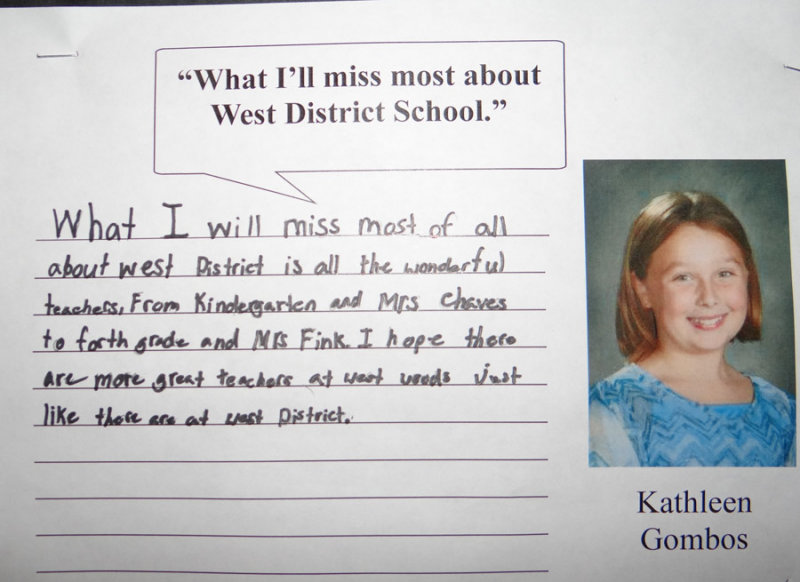 “What I’ll miss most about
West District School.”
What I will miss most of all
about west District is all the wonderful
teachers, From Kindergarten and Mrs Chaves
to forth grade and Mrs Fink. I hope there
are more great teachers at west woods just
like there are at west District.
Kathleen
Gombos